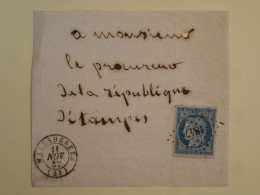 a monsieur
le procureur
de la république
d'étampes
11
NOV.